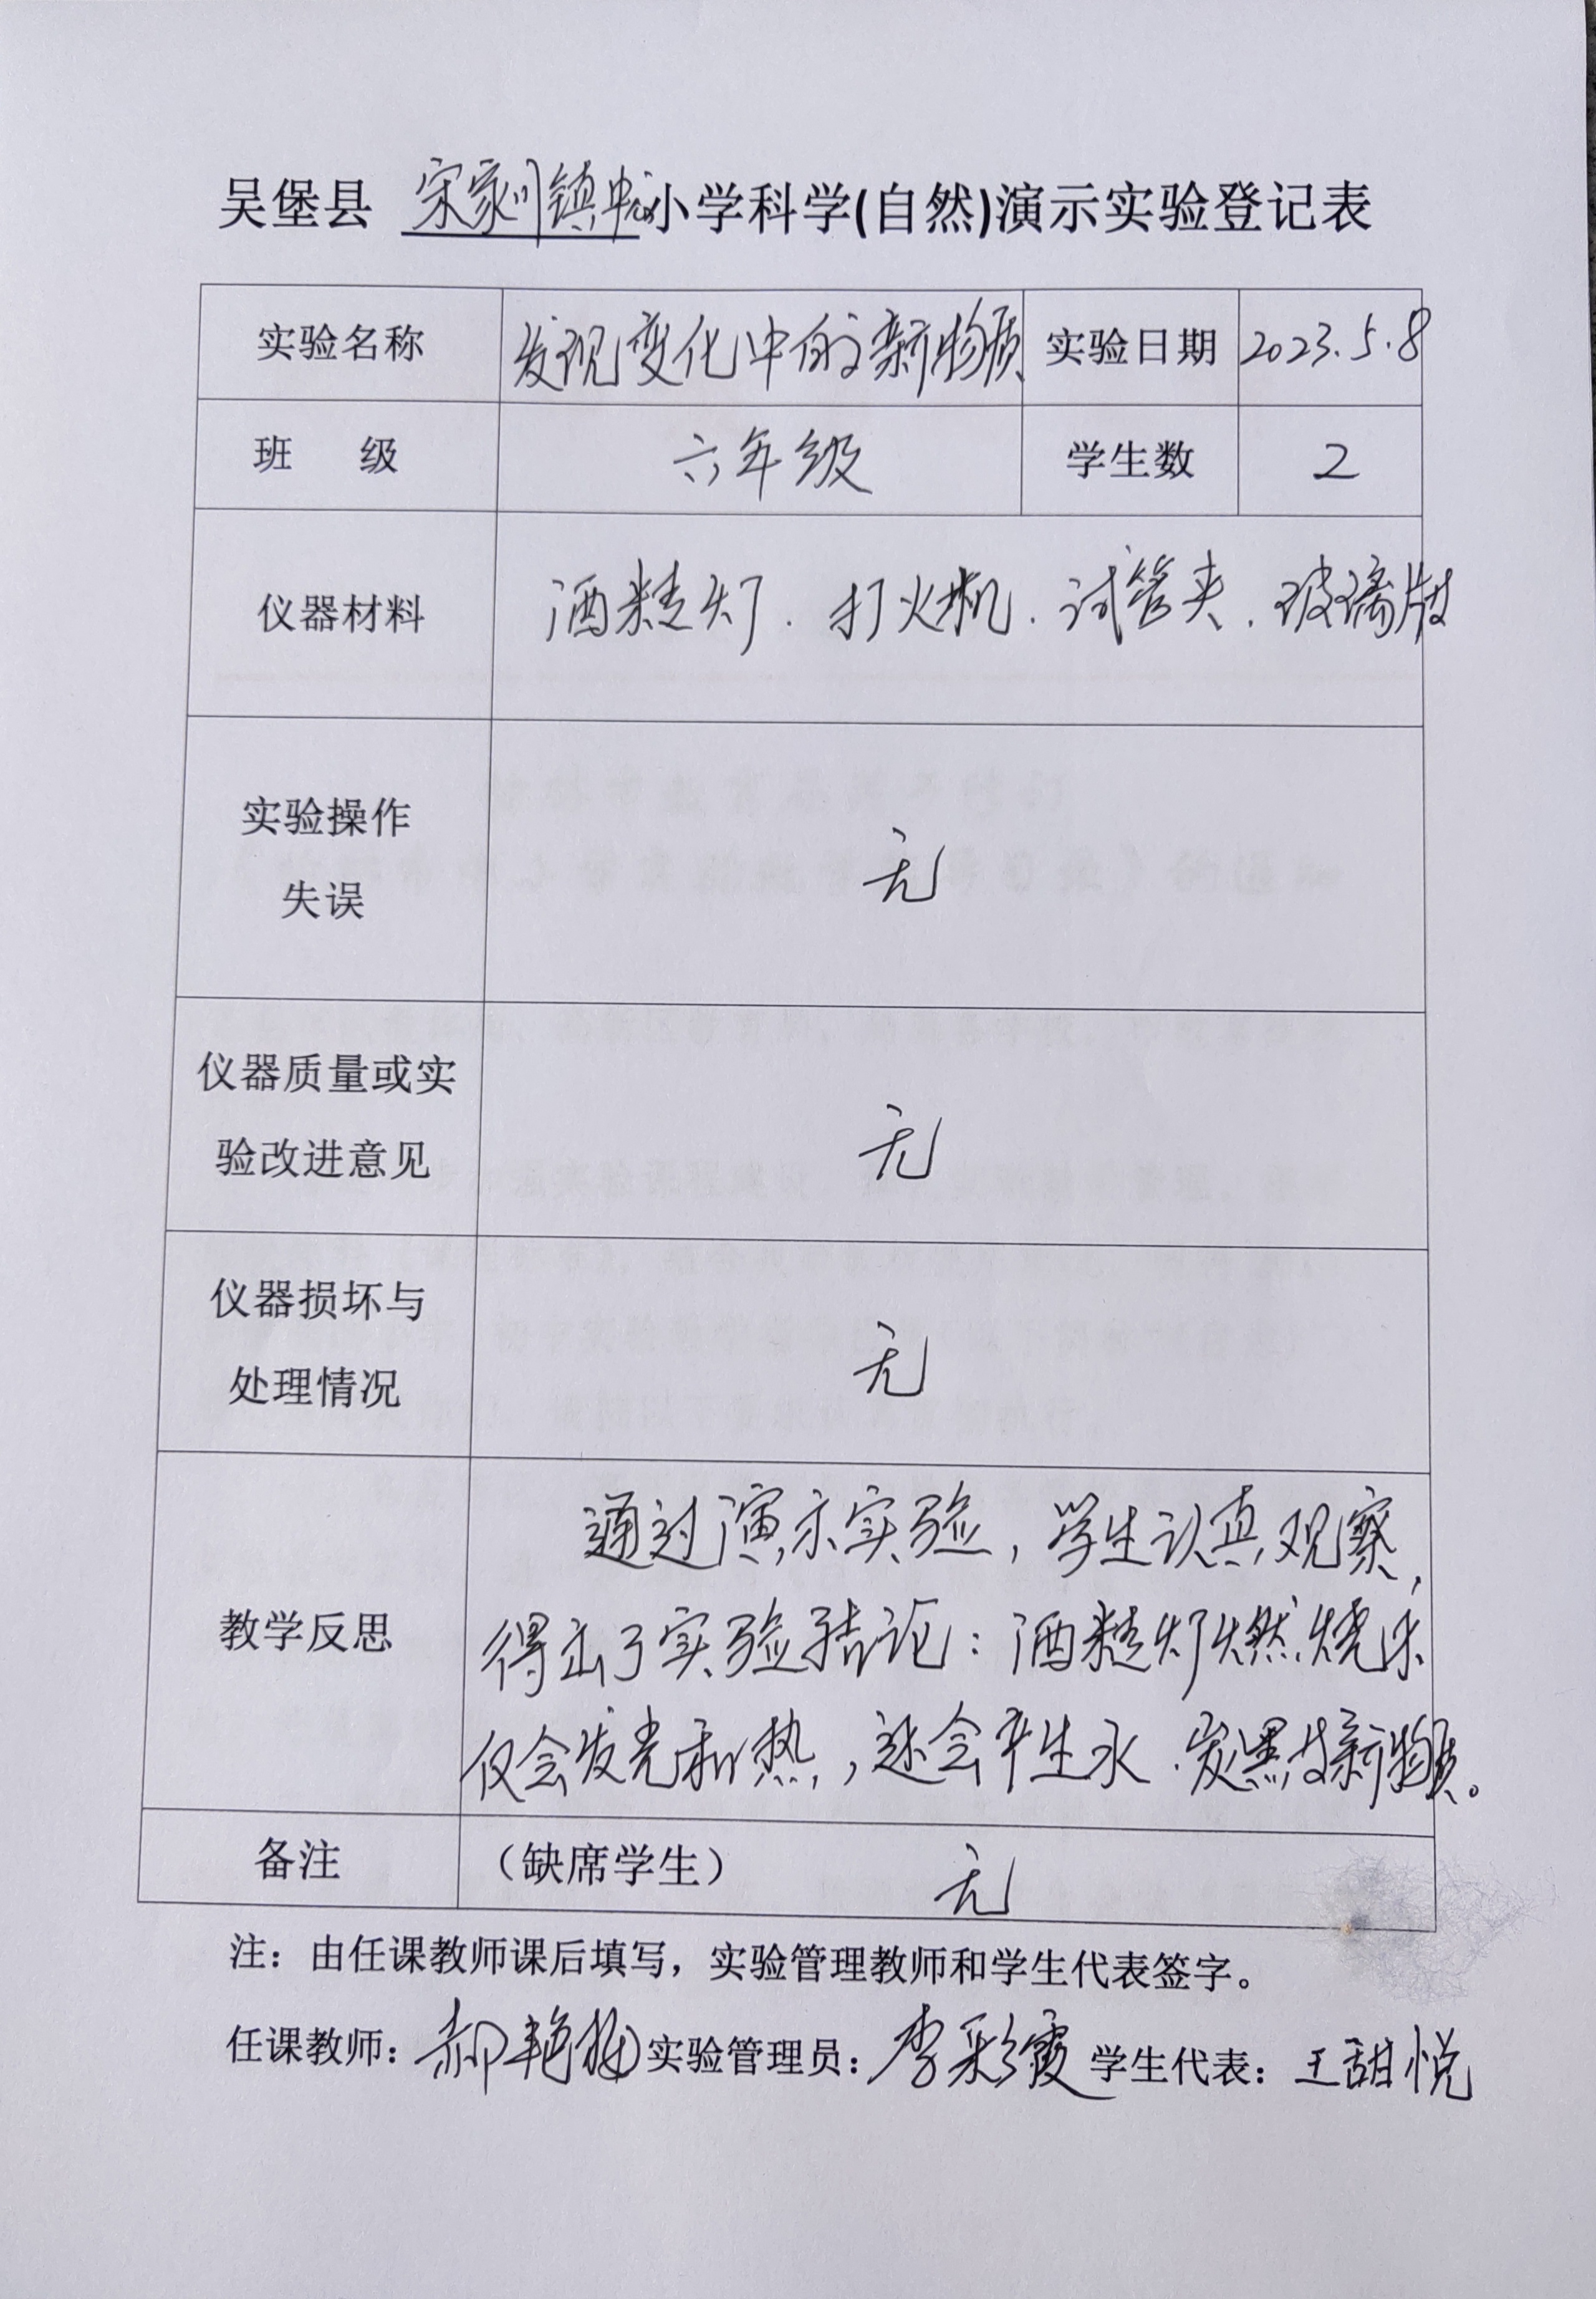 吴堡县 宋家川镇中心小学科学(自然)演示实验登记表
实验名称 发现变化中的新物质 实验日期 2023.5.8
班 级 六年级 学生数 2
仪器材料 酒精灯．打火机．试管夹．玻璃版
实验操作
失误
无
仪器质量或实
验改进意见
无
仪器损坏与
处理情况
无
教学反思
通过演示实验，学生认真观察，
得出了实验结论：酒精灯燃烧不
仅会发光和热，还会产生水．炭黑等新物质。
备注 （缺席学生） 无
注：由任课教师课后填写，实验管理教师和学生代表签字。
任课教师：郝艳梅 实验管理员：李彩霞 学生代表：王甜悦